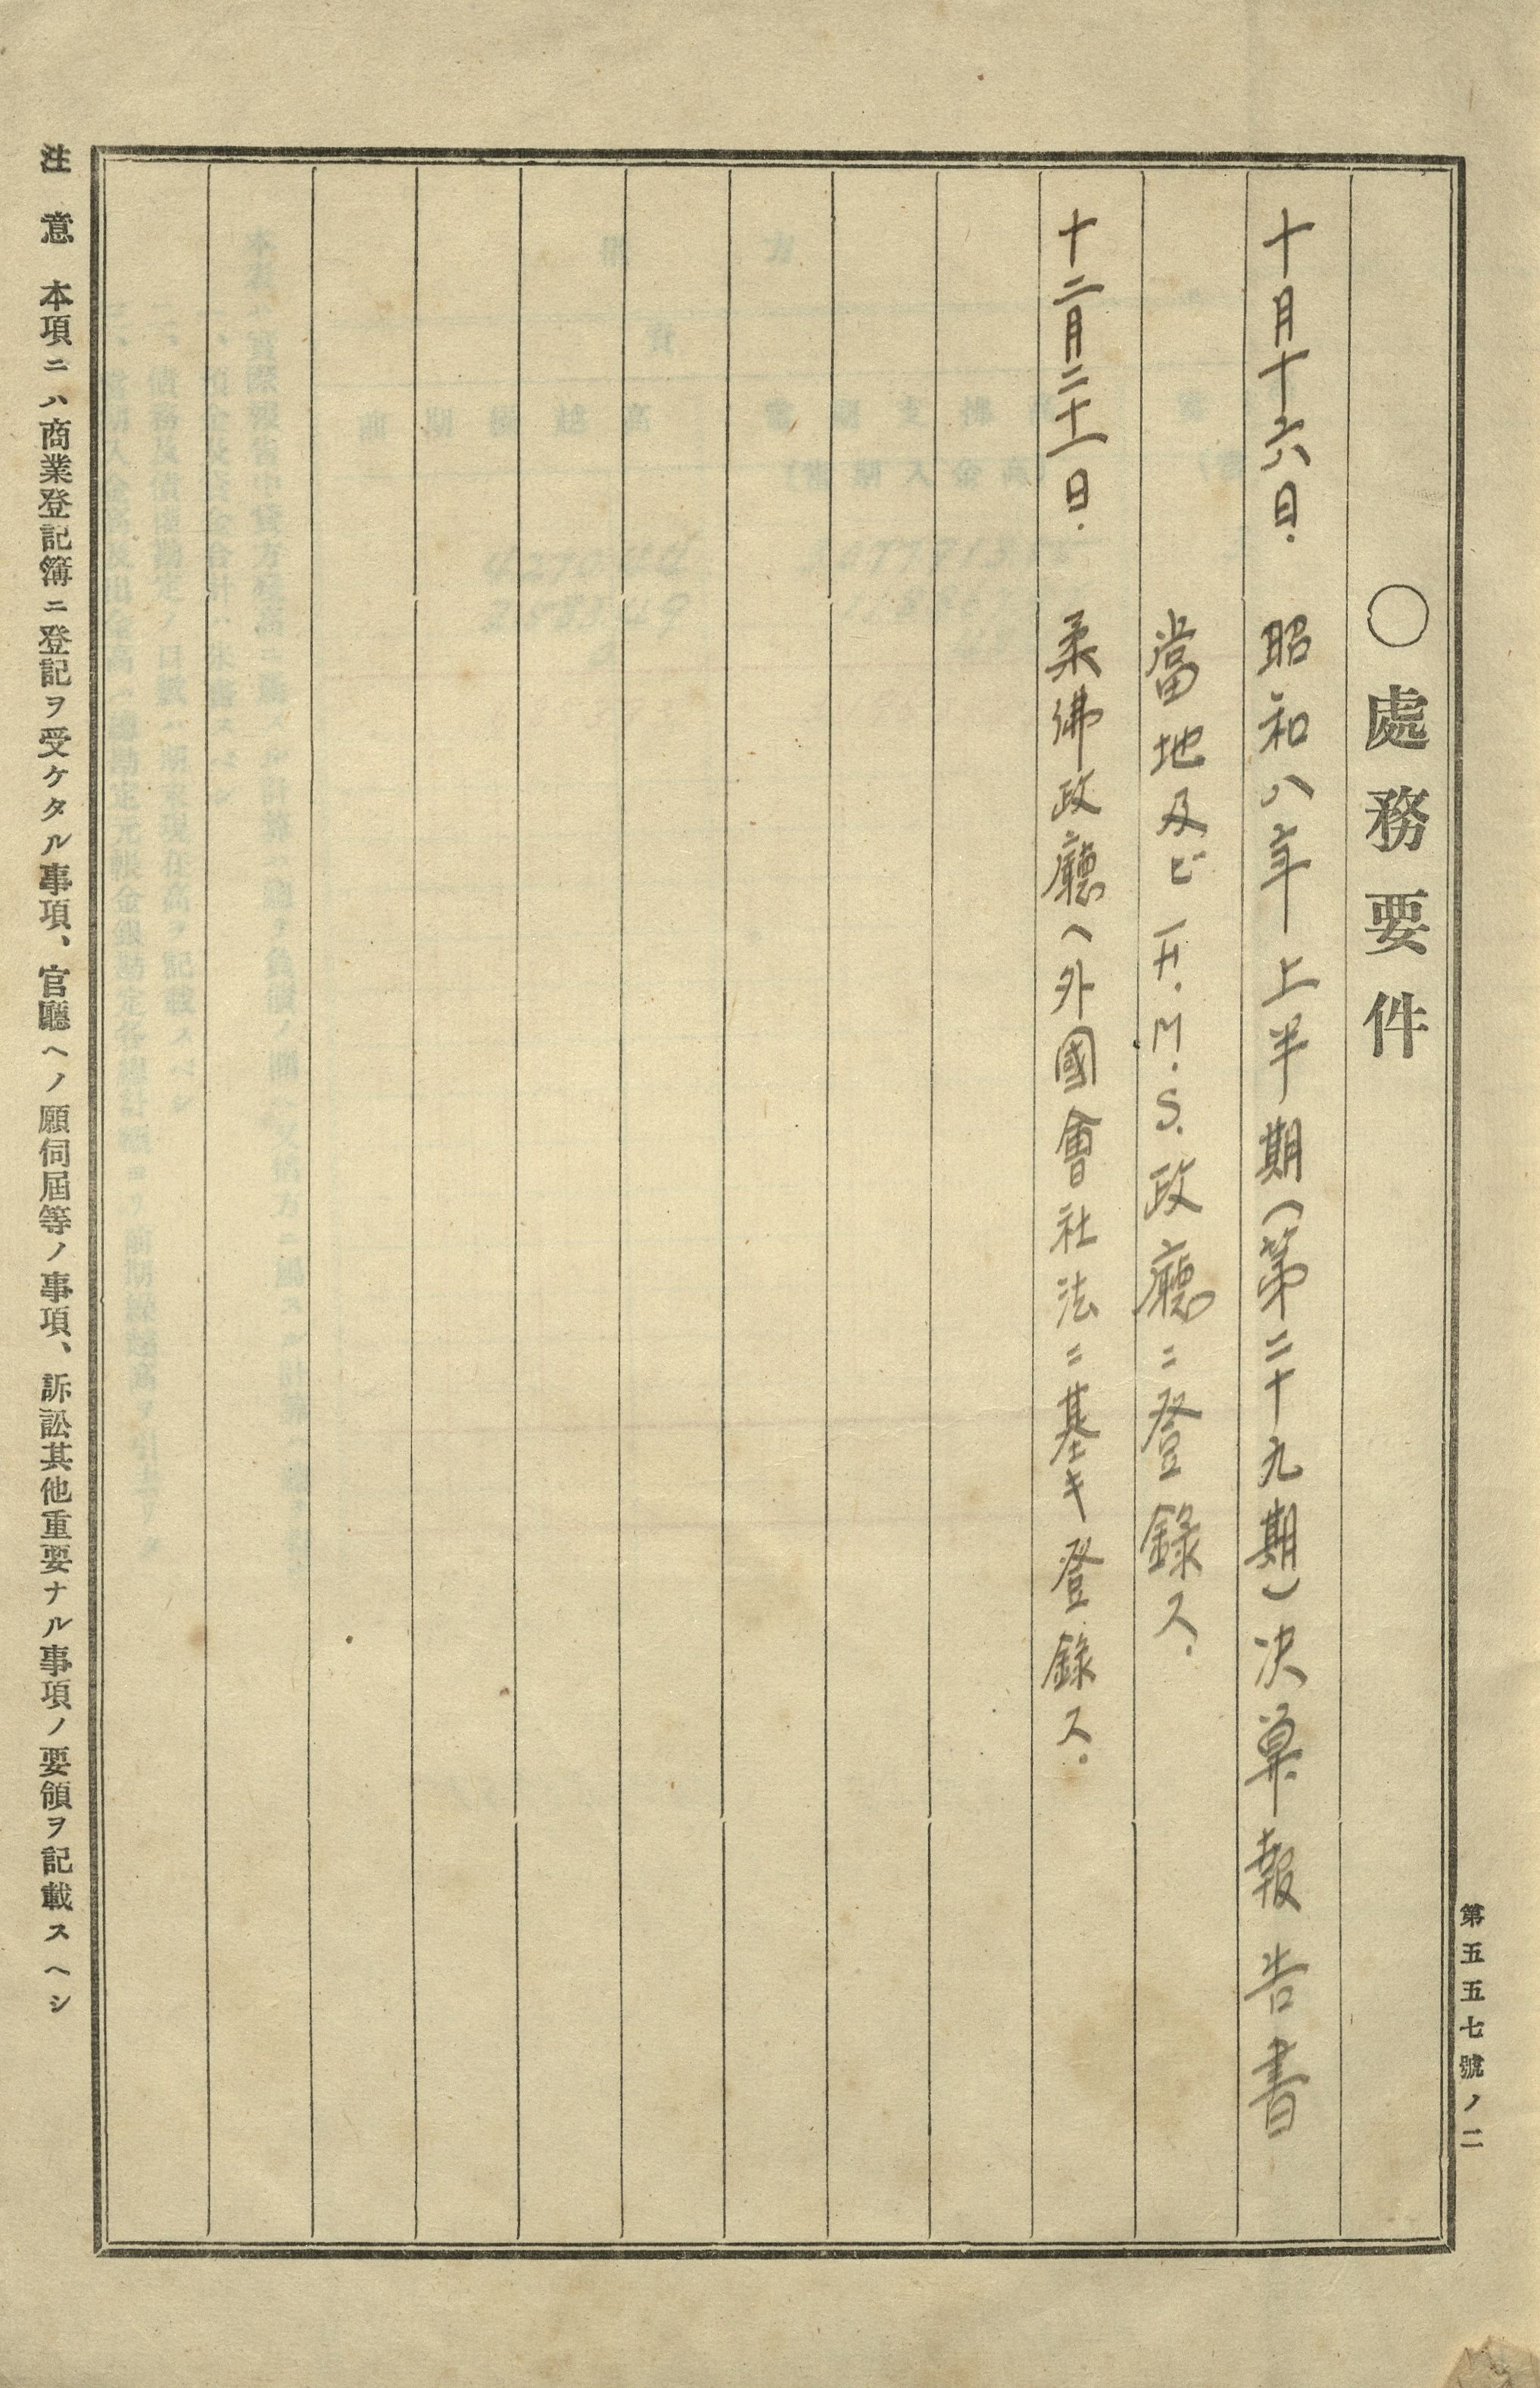 第五五七號ノ二
〇處務要件
十月十六日. 昭和八年上半期(第二十九期)決算報告書
當地及ビF.M.S.政廳ニ登錄ス.
十二月二十一日. 柔佛政廳ヘ外國會社法ニ基キ登錄ス.
注意 本項ニハ商業登記簿ニ登記ヲ受ケタル事項、官廳ヘノ願伺屆等ノ事項、訴訟其他重要ナル事項ノ要領ヲ記載スヘシ